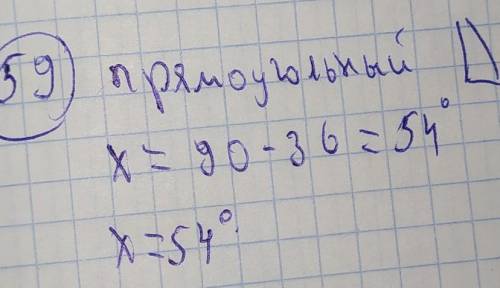 59 прямоугольный
x = 90 - 36 = 54°
x = 54°